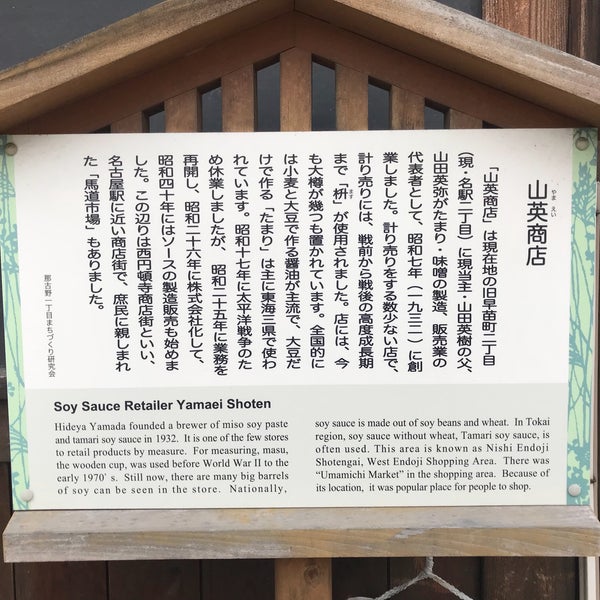 山英商店
やま えい
「山英商店」は現在地の旧早苗町二丁目
(現・名駅二丁目)に現当主・山田英樹の父、
山田英弥がたまり・味噌の製造、販売業の
代表者として、昭和七年(一九三二)に創
業しました。計り売りをする数少ない店で、
計り売りには、戦前から戦後の高度成長期
まで「枡」が使用されました。店には、今
ます
も大樽が幾つも置かれています。全国的に
は小麦と大豆で作る醤油が主流で、大豆だ
けで作る「たまり」は主に東海三県で使わ
れています。昭和十七年に太平洋戦争のた
め休業しましたが、昭和二十五年に業務を
再開し、昭和二十六年に株式会社化して、
昭和四十年にはソースの製造販売も始めま
した。この辺りは西円頓寺商店街といい、
名古屋駅に近い商店街で、庶民に親しまれ
た「馬道市場」もありました。
那古野一丁目まちづくり研究会
Soy Sauce Retailer Yamaei Shoten
Hideya Yamada founded a brewer of miso soy paste
and tamari soy sauce in 1932. It is one of the few stores
to retail products by measure. For measuring, masu,
the wooden cup, was used before World War II to the
early 1970's. Still now, there are many big barrels
of soy can be seen in the store. Nationally,
soy sauce is made out of soy beans and wheat. In Tokai
region, soy sauce without wheat, Tamari soy sauce, is
often used. This area is known as Nishi Endoji
Shotengai, West Endoji Shopping Area. There was
"Umamichi Market" in the shopping area. Because of
its location, it was popular place for people to shop.